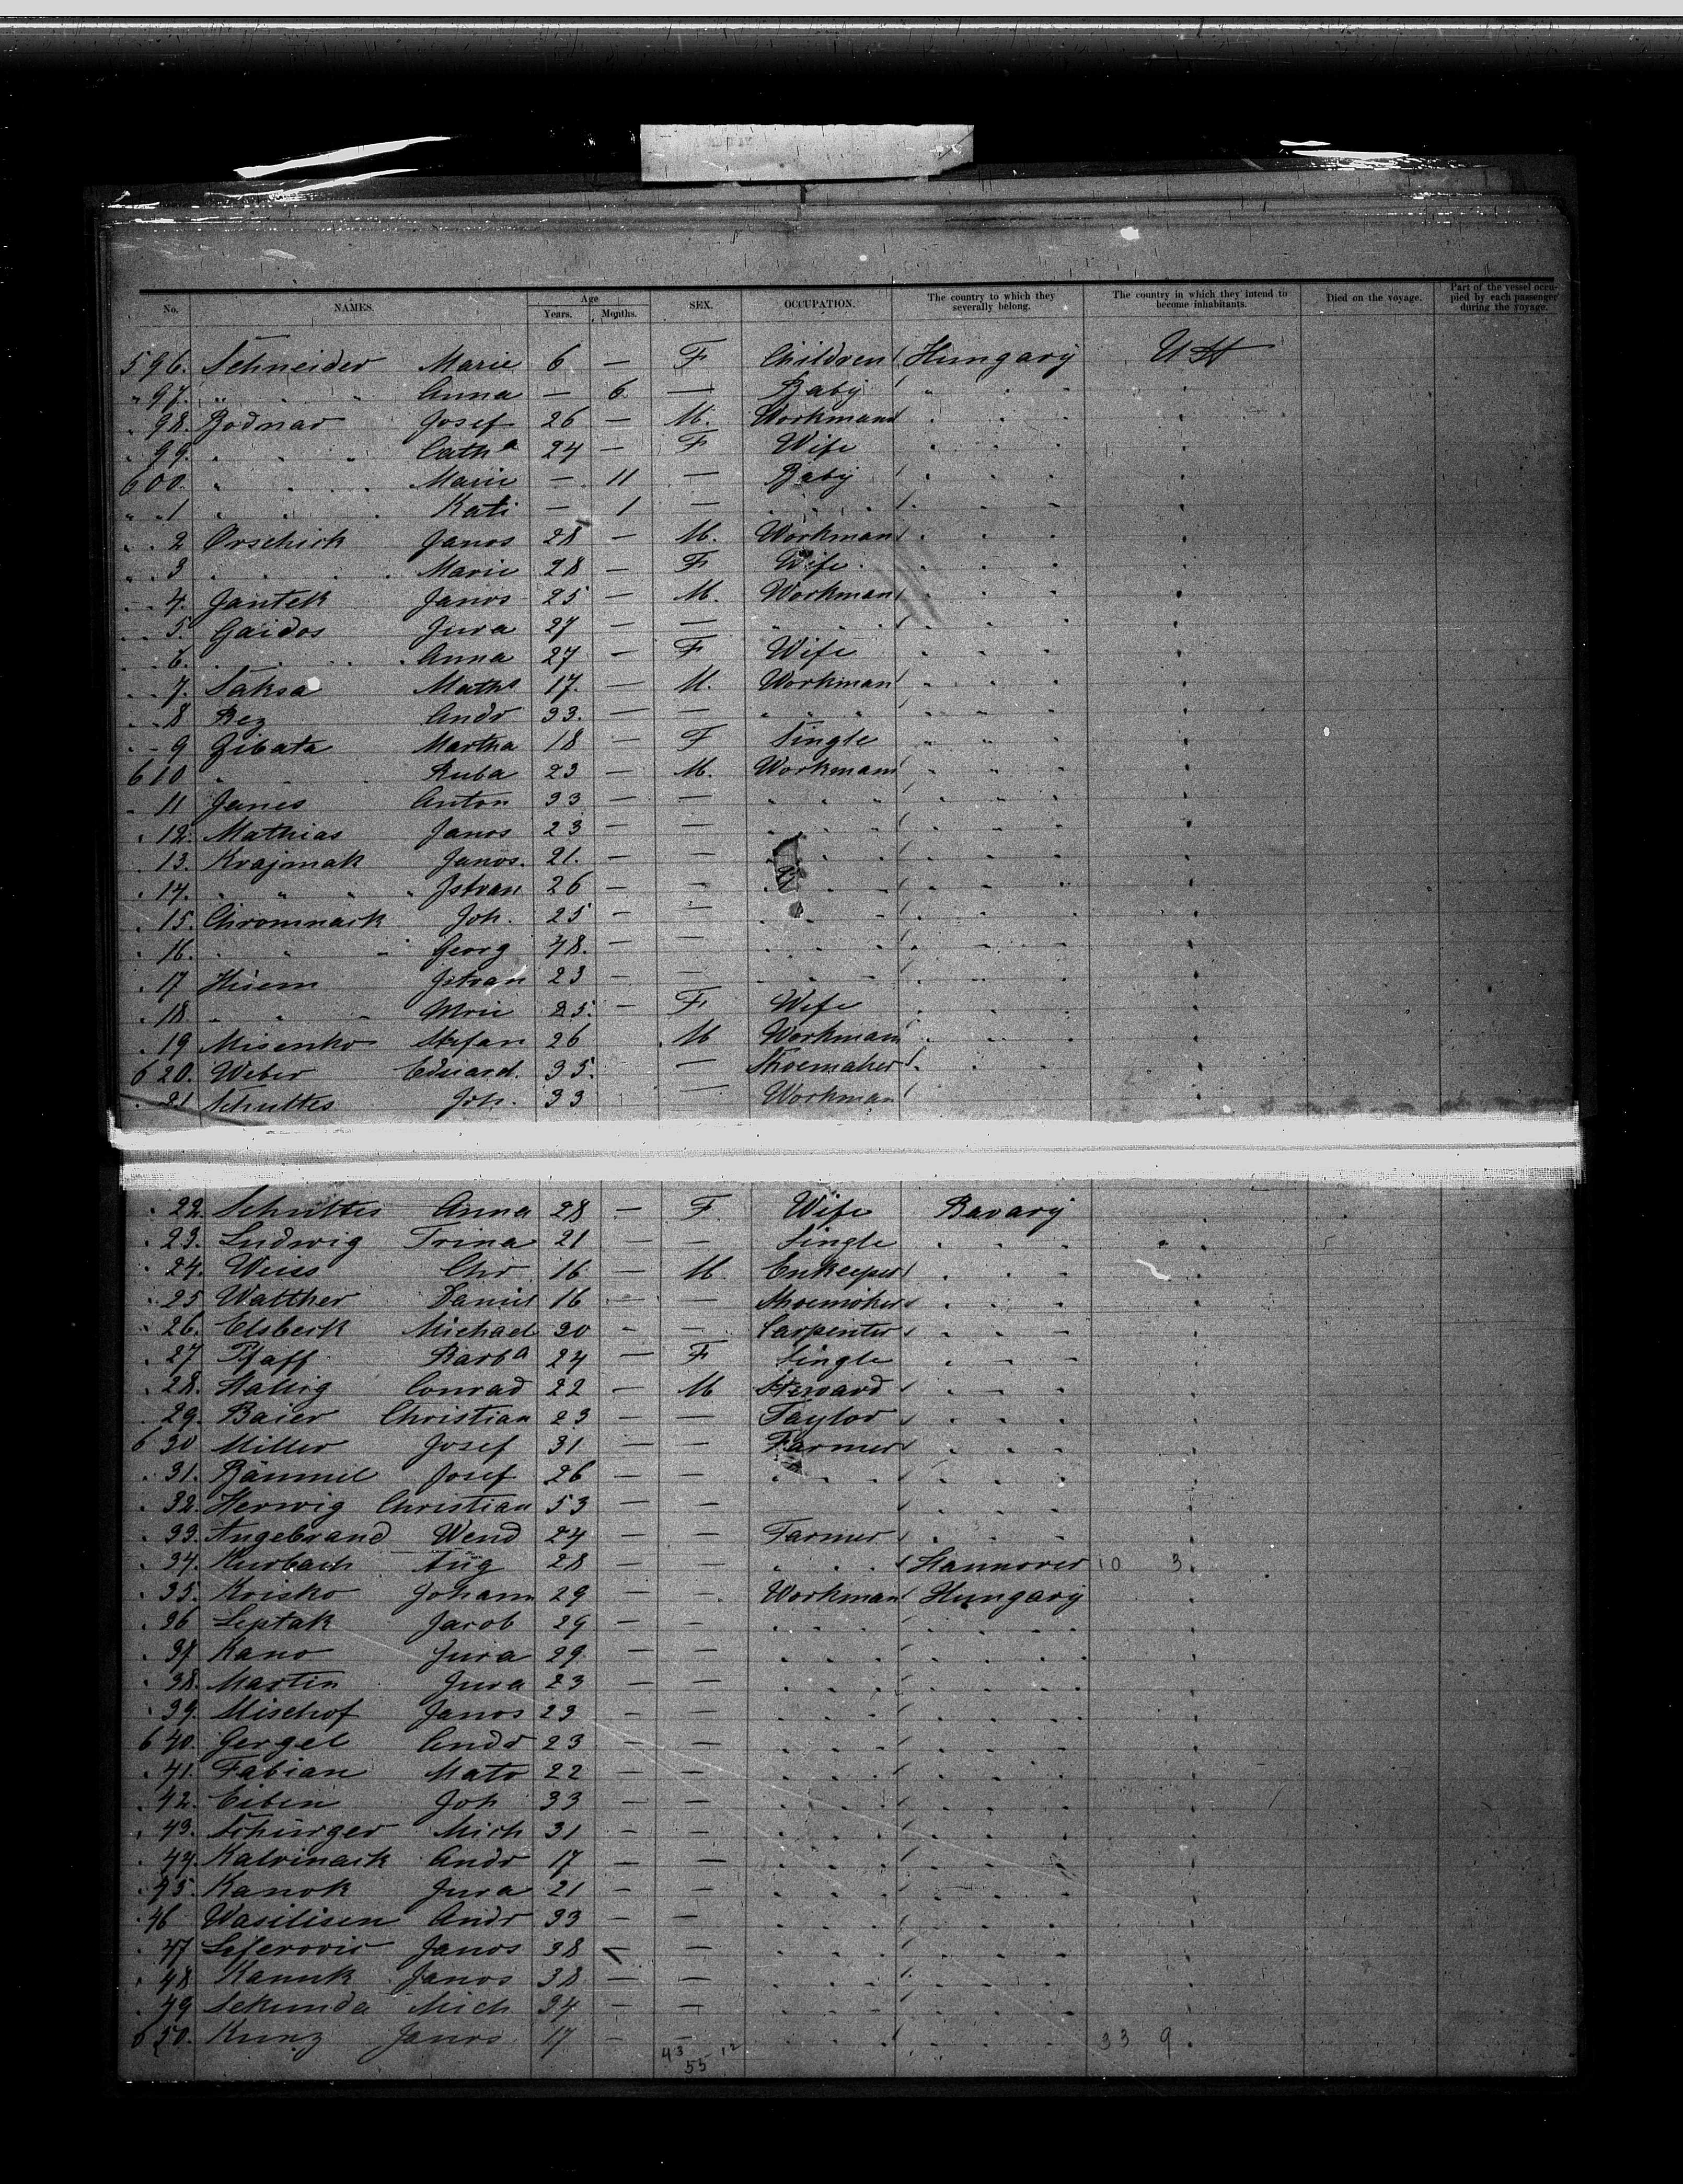 No. NAMES. Age Years. Months. SEX. OCCUPATION. The country to which they severally belong. The country in which they intend to become inhabitants. Died on the voyage. Part of the vessel occupied by each passenger during the voyage.
596. Schneider Marie 6 — F Children Hungary
" 97. " " " Anna — 6 — Baby " " "
" 98. Bodnar Josef 26 — M. Workman " " "
" 99. " " " Cath a 24 — F Wife " " "
600. " " " Marie — 11 — Baby " " "
" " 1 " " " Kati — 1 — " " " " " "
" " 2 Orschick Janos 28 — M. Workman " " "
" " 3 " " " Marie 28 — F Wife " " "
" " 4. Jantek Janos 25 — M. Workman " " "
" " 5. Gaidos Jura 27 — — " " " " " "
" " 6. " " " Anna 27 — F Wife " " "
" " 7. Saksa Maths 17. — M. Workman " " "
" " 8 Rez Andr 33. — — " " " " " "
" " 9 Zibata Martha 18 — F Single " " "
610 " " Ruba 23 — M. Workman " " "
" 11 Janes Anton 33 — — " " " " " "
" 12. Mathias Janos 23 — — " " " " " "
" 13. Krajmak Janos. 21. — — " " " " "
" 14. " " " Istvan 26 — — " " " " "
" 15. Chromnack Joh. 25 — — " " " " " "
" 16. " " " Georg 48. — — " " " " " "
" 17 Istvan 23 — — " " " " " "
" 18 " " " 25. — F Wife " " "
" 19 Misenko Stefan 26 M Workman " " "
620. Weber Eduard. 35. — Shoemaker "
" 21 Schultes Joh. 33 — Workman
" 22. Schultes Anna 28 — F. Wife Bavary
" 23. Ludwig Trina 21 — — Single " " "
" 24. Weiss Chr 16 — M. Enkeeper " " "
" 25 Walther Daniel 16 — — Shoemoker " " "
" 26. Elsbeck Michael 30 — — Carpenter " " "
" 27 Pfaff Barb a 24 — F Single " " "
" 28. Conrad 22 — M Steward " " "
" 29. Baier Christian 23 — — Taylor " " "
630 Miller Josef 31 — — Farmer " " "
" 31. Josef 26 — — " " " " " "
" 32. Herwig Christian 53 — — " " "
" 33. Angebrand Wend 24 — — Farmer " " "
" 34. Kurbach Aug 28 — — " " " Hannover 10 3
" 35. Krisko Johann 29 — Workman Hungary
" 36 Leptak Jacob 29 — — " " " " " "
" 37 Kano Jura 29. — — " " " " " "
" 38. Martin Jura 23 — — " " " " " "
" 39. Mischof Janos 23 — — " " " " " "
640. Gergel Andr 23 — — " " " " " "
" 41. Fabian Mato 22 — — " " " " " "
" 42. Eiben Joh 33 — — " " " " " "
" 43. Schurger Mich 31 — — " " " " " "
" 44. Kalvinack Andr 17 — — " " " " " "
" 45. Kanok Jura 21 — — " " " " " "
" 46 Wasilisen Andr 33 — — " " " " " "
" 47 Janos 38 — — " " " " " "
" 48 Kanuk Janos 38 — — " " " " " "
" 49 Sekunda Mich 34 — — " " " " " "
650. Kunz Janos 17 — — " " " " " " 33 9
43 12
55